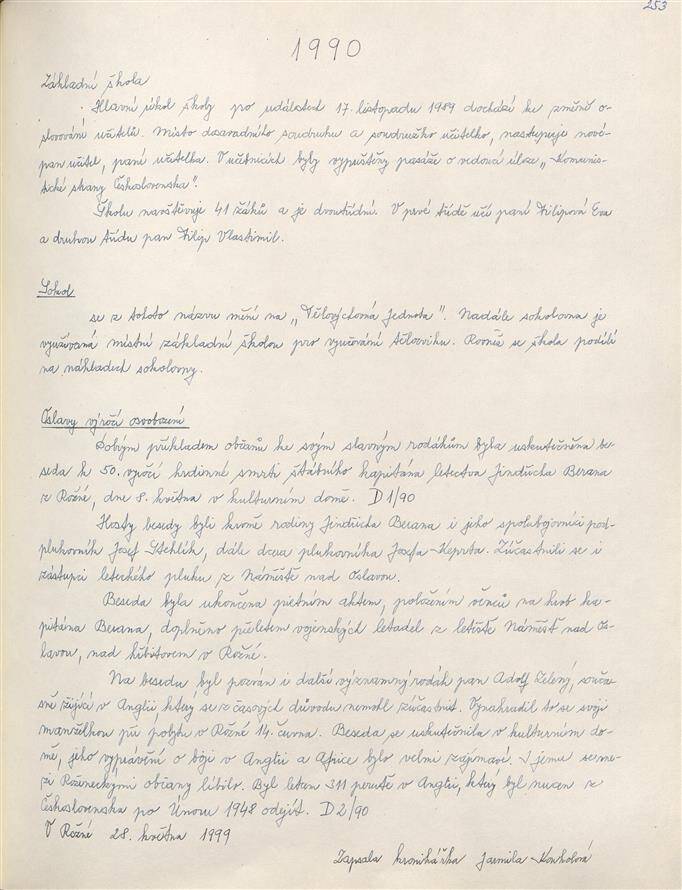 253
1990
Základní škola
Hlavní úkol školy po událostech 17. listopadu 1989 dochází ke změně o-
slovování učitelů. Místo dosavadního soudruhu a soudružko učitelko, nastupuje nové-
pan učitel, paní učitelka. V učebnicích byly vypuštěny pasáže o vedoucí úloze „Komunis-
tické strany Československa".
Školu navštěvuje 41 žáků a je dvoutřídní. V prvé třídě učí paní Filipová Eva
a druhou třídu pan Filip Vlastimil.
Sokol
se z tohoto názvu mění na „Tělovýchovná jednota". Nadále sokolovna je
využívaná místní základní školou pro vyučování tělocviku. Rovněž se škola podílí
na nákladech sokolovny.
Oslavy výročí osvobození
Dobrým příkladem občanů ke svým slavným rodákům byla uskutečněna be-
seda k 50. výročí hrdinné smrti štábního kapitána letectva Jindřicha Berana
z Rožné, dne 8. května v kulturním domě. D1/90
Hosty besedy byli kromě rodiny Jindřicha Berana i jeho spolubojovníci pod-
plukovník Josef Stehlík, dále dcera plukovníka Josefa Keprta. Zúčastnili se i
zástupci leteckého pluku z Náměště nad Oslavou.
Beseda byla ukončena pietním aktem, položením věnců na hrob ka-
pitána Berana, doplněno přeletem vojenských letadel z letiště Náměšť nad Os-
lavou, nad hřbitovem v Rožné.
Na besedu byl pozván i další významný rodák pan Adolf Zelený, souča-
sně žijící v Anglii, který se z časových důvodu nemohl zúčastnit. Vynahradil to se svojí
manželkou při pobytu v Rožné 14. června. Beseda se uskutečnila v kulturním do-
mě, jeho vyprávění o boji v Anglii a Africe bylo velmi zajímavé. I jemu se me-
zi Roženeckými občany líbilo. Byl letcem 311 perutě v Anglii, který byl nucen z
Československa po Únoru 1948 odejít. D2/90
V Rožné 28. května 1999
Zapsala kronikářka Jarmila Konkolová